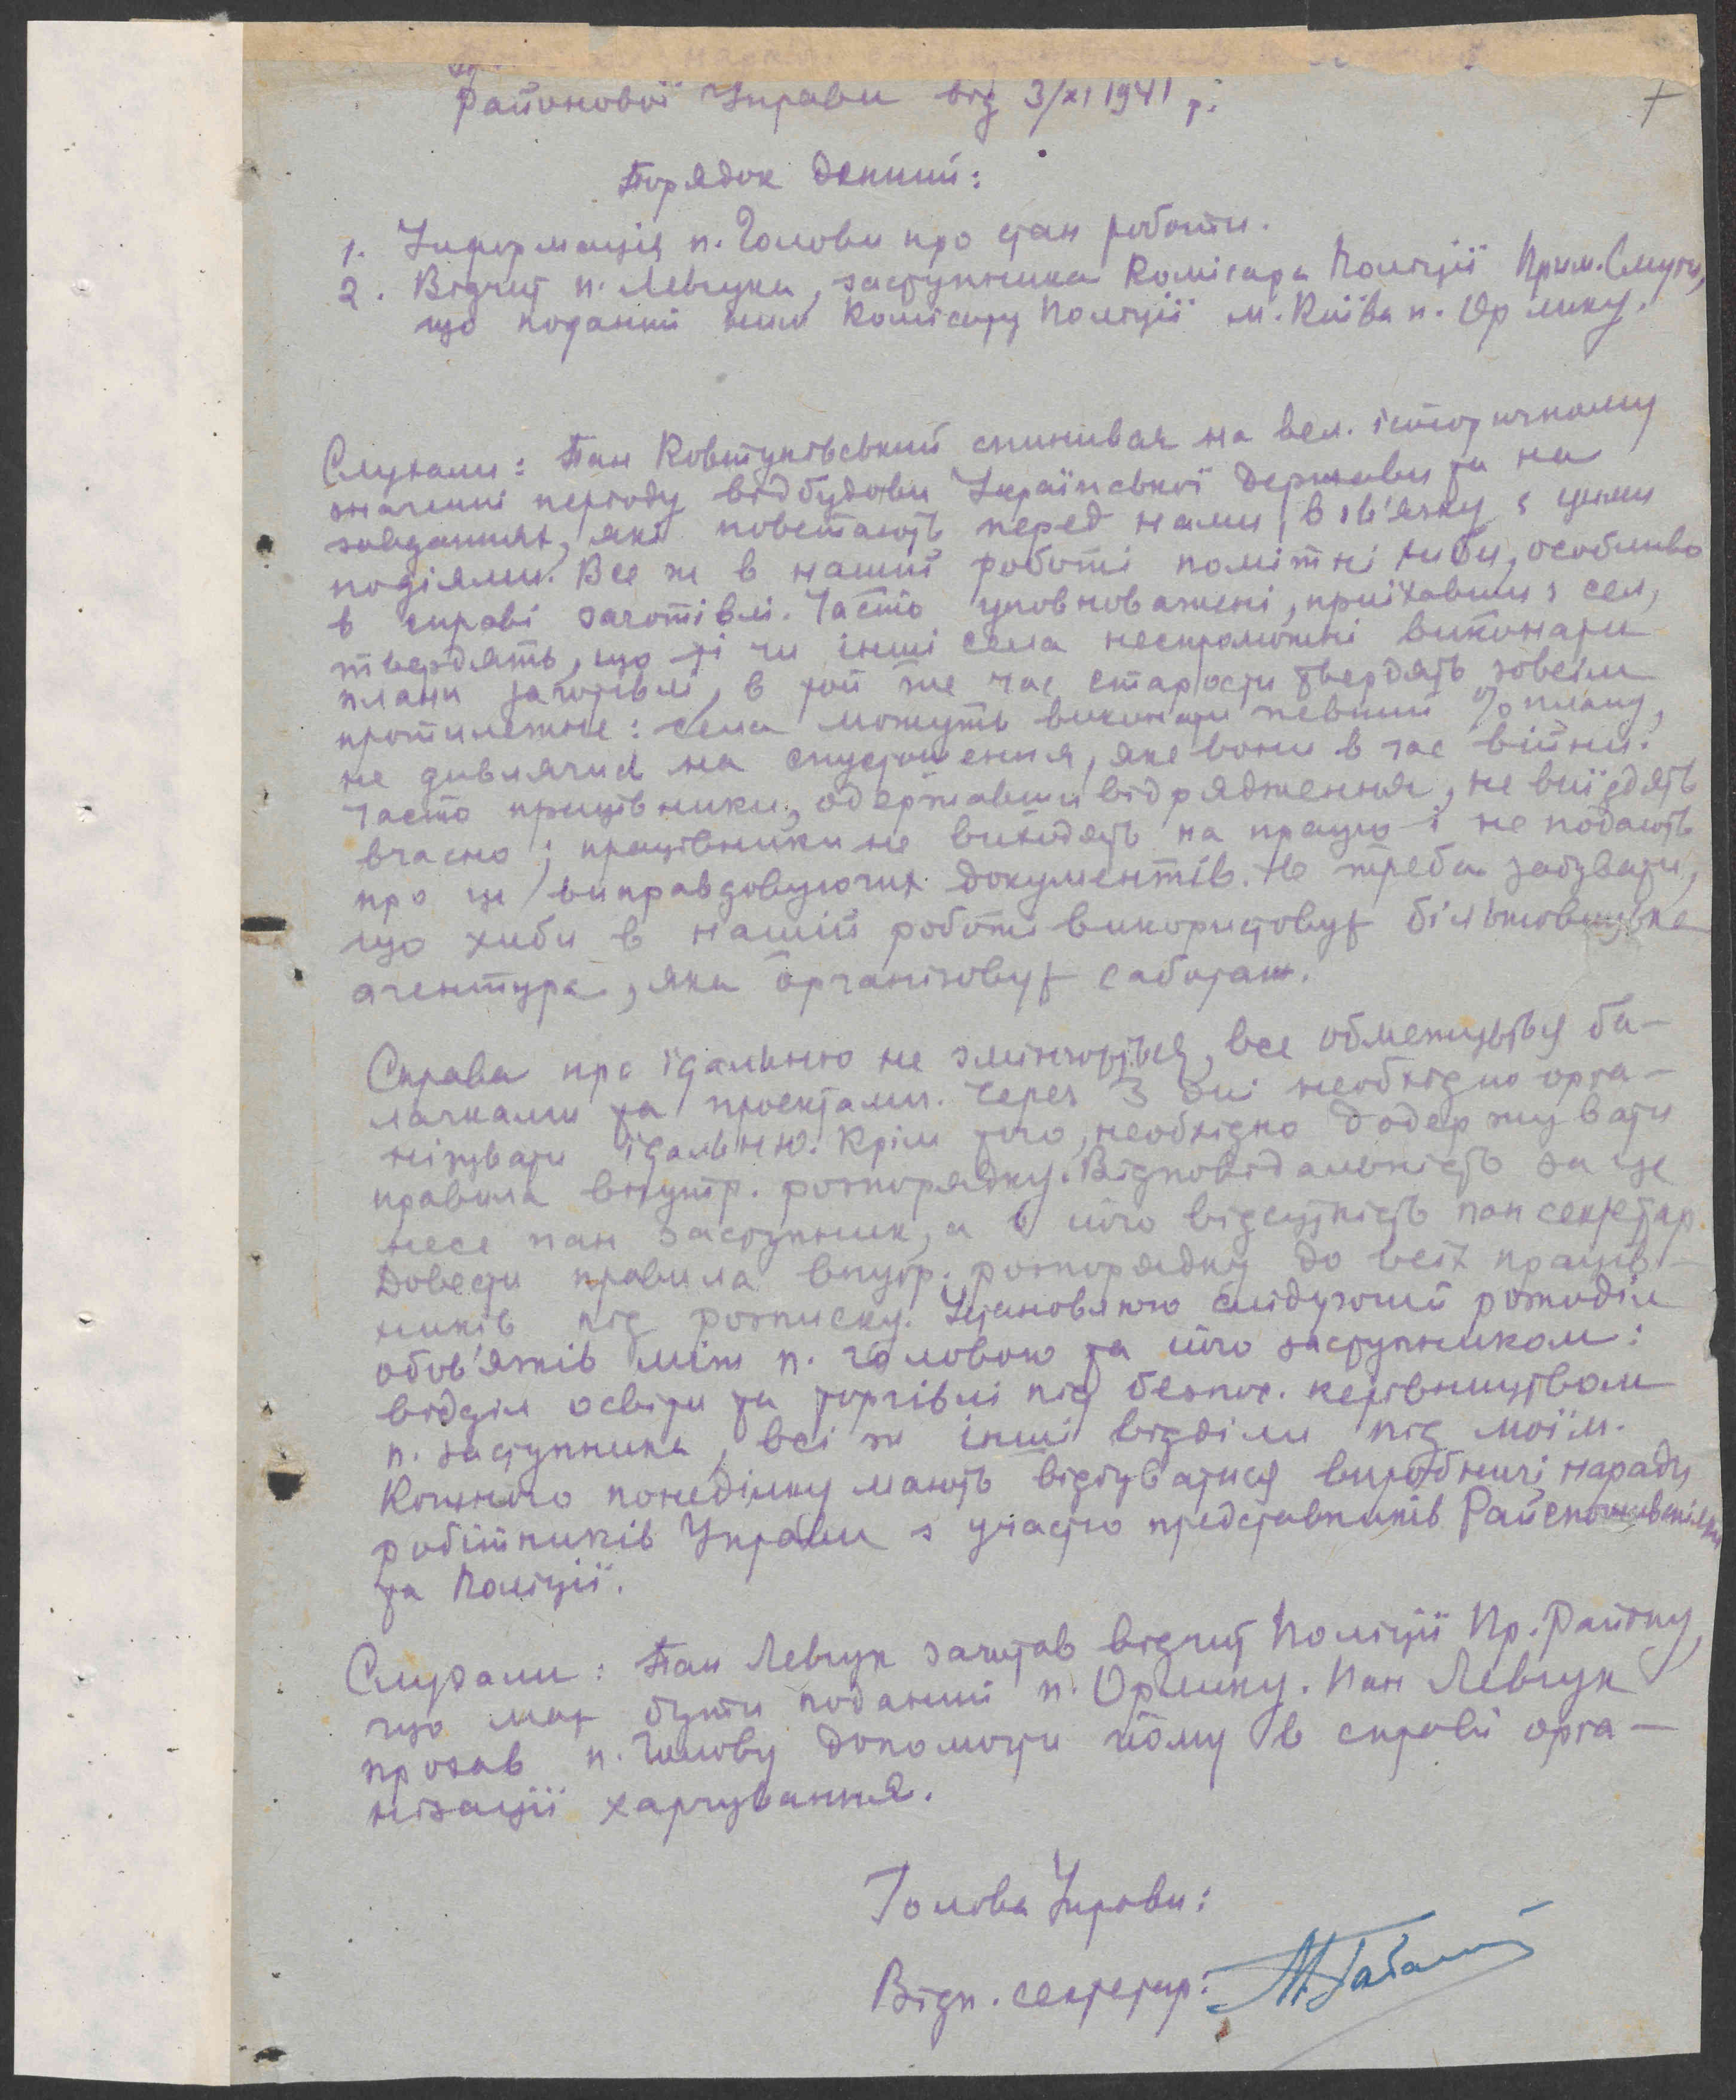 Районової Управи від 3/XI 1941 р.
Порядок денний:
1. Інформація п. Голови про стан роботи.
2. Відчит п. Левчука, заступника Комісара Поліції Прим. Смуги,
що поданий ним Комісару Поліції м. Київа п. Орлику.
Слухали: Пан Ковтунівський спинився на вел. історичному
значінні періоду відбудови Української Держави та на
завданнях, які повстають перед нами, в зв'язку з цими
подіями. Все ж в нашій роботі помітні хиби, особливо
в справі заготівлі. Часто уповноважені, приїхавши з сел,
твердять, що ті чи інші села неспроможні виконати
плани заготівлі, в той же час старости твердять зовсім
протилежне: села можуть виконати певний % плану,
не дивлячись на спустошення, яке вони в час війни.
Часто працівники, одержавши відрядження, не виїздять
вчасно; працівники не виходять на працю і не подають
про це виправдовуючих документів. Не треба забувати,
що хиби в нашій роботі використовує більшовицька
агентура, яка організовує саботаж.
Справа про їдальню не змінюється, все обмежується ба-
лачками та проектами. Через 3 дні необхідно орга-
нізувати їдальню. Крім того, необхідно додержувати
правила внутр. розпорядку. Відповідальність за це
несе пан Заступник, а в його відсутність пан секретар.
Довести правила внутр. розпорядку до всіх праців-
ників під розписку. Установлюю слідуючий розподіл
обов'язків між п. головою та його заступником:
відділ освіти та торгівлі під безпос. керівництвом
п. заступника, всі ж інші відділи під моїм.
Кожного понеділку мають відбуватися виробничі наради
робітників Управи з участю представників Райспоживспілки
та Поліції.
Слухали: Пан Левчук зачитав відчит Поліції Пр. Району,
що має бути поданий п. Орлику. Пан Левчук
прохав п. Голову допомогти йому в справі орга-
нізації харчування.
Голова Управи:
Відп. секретар: